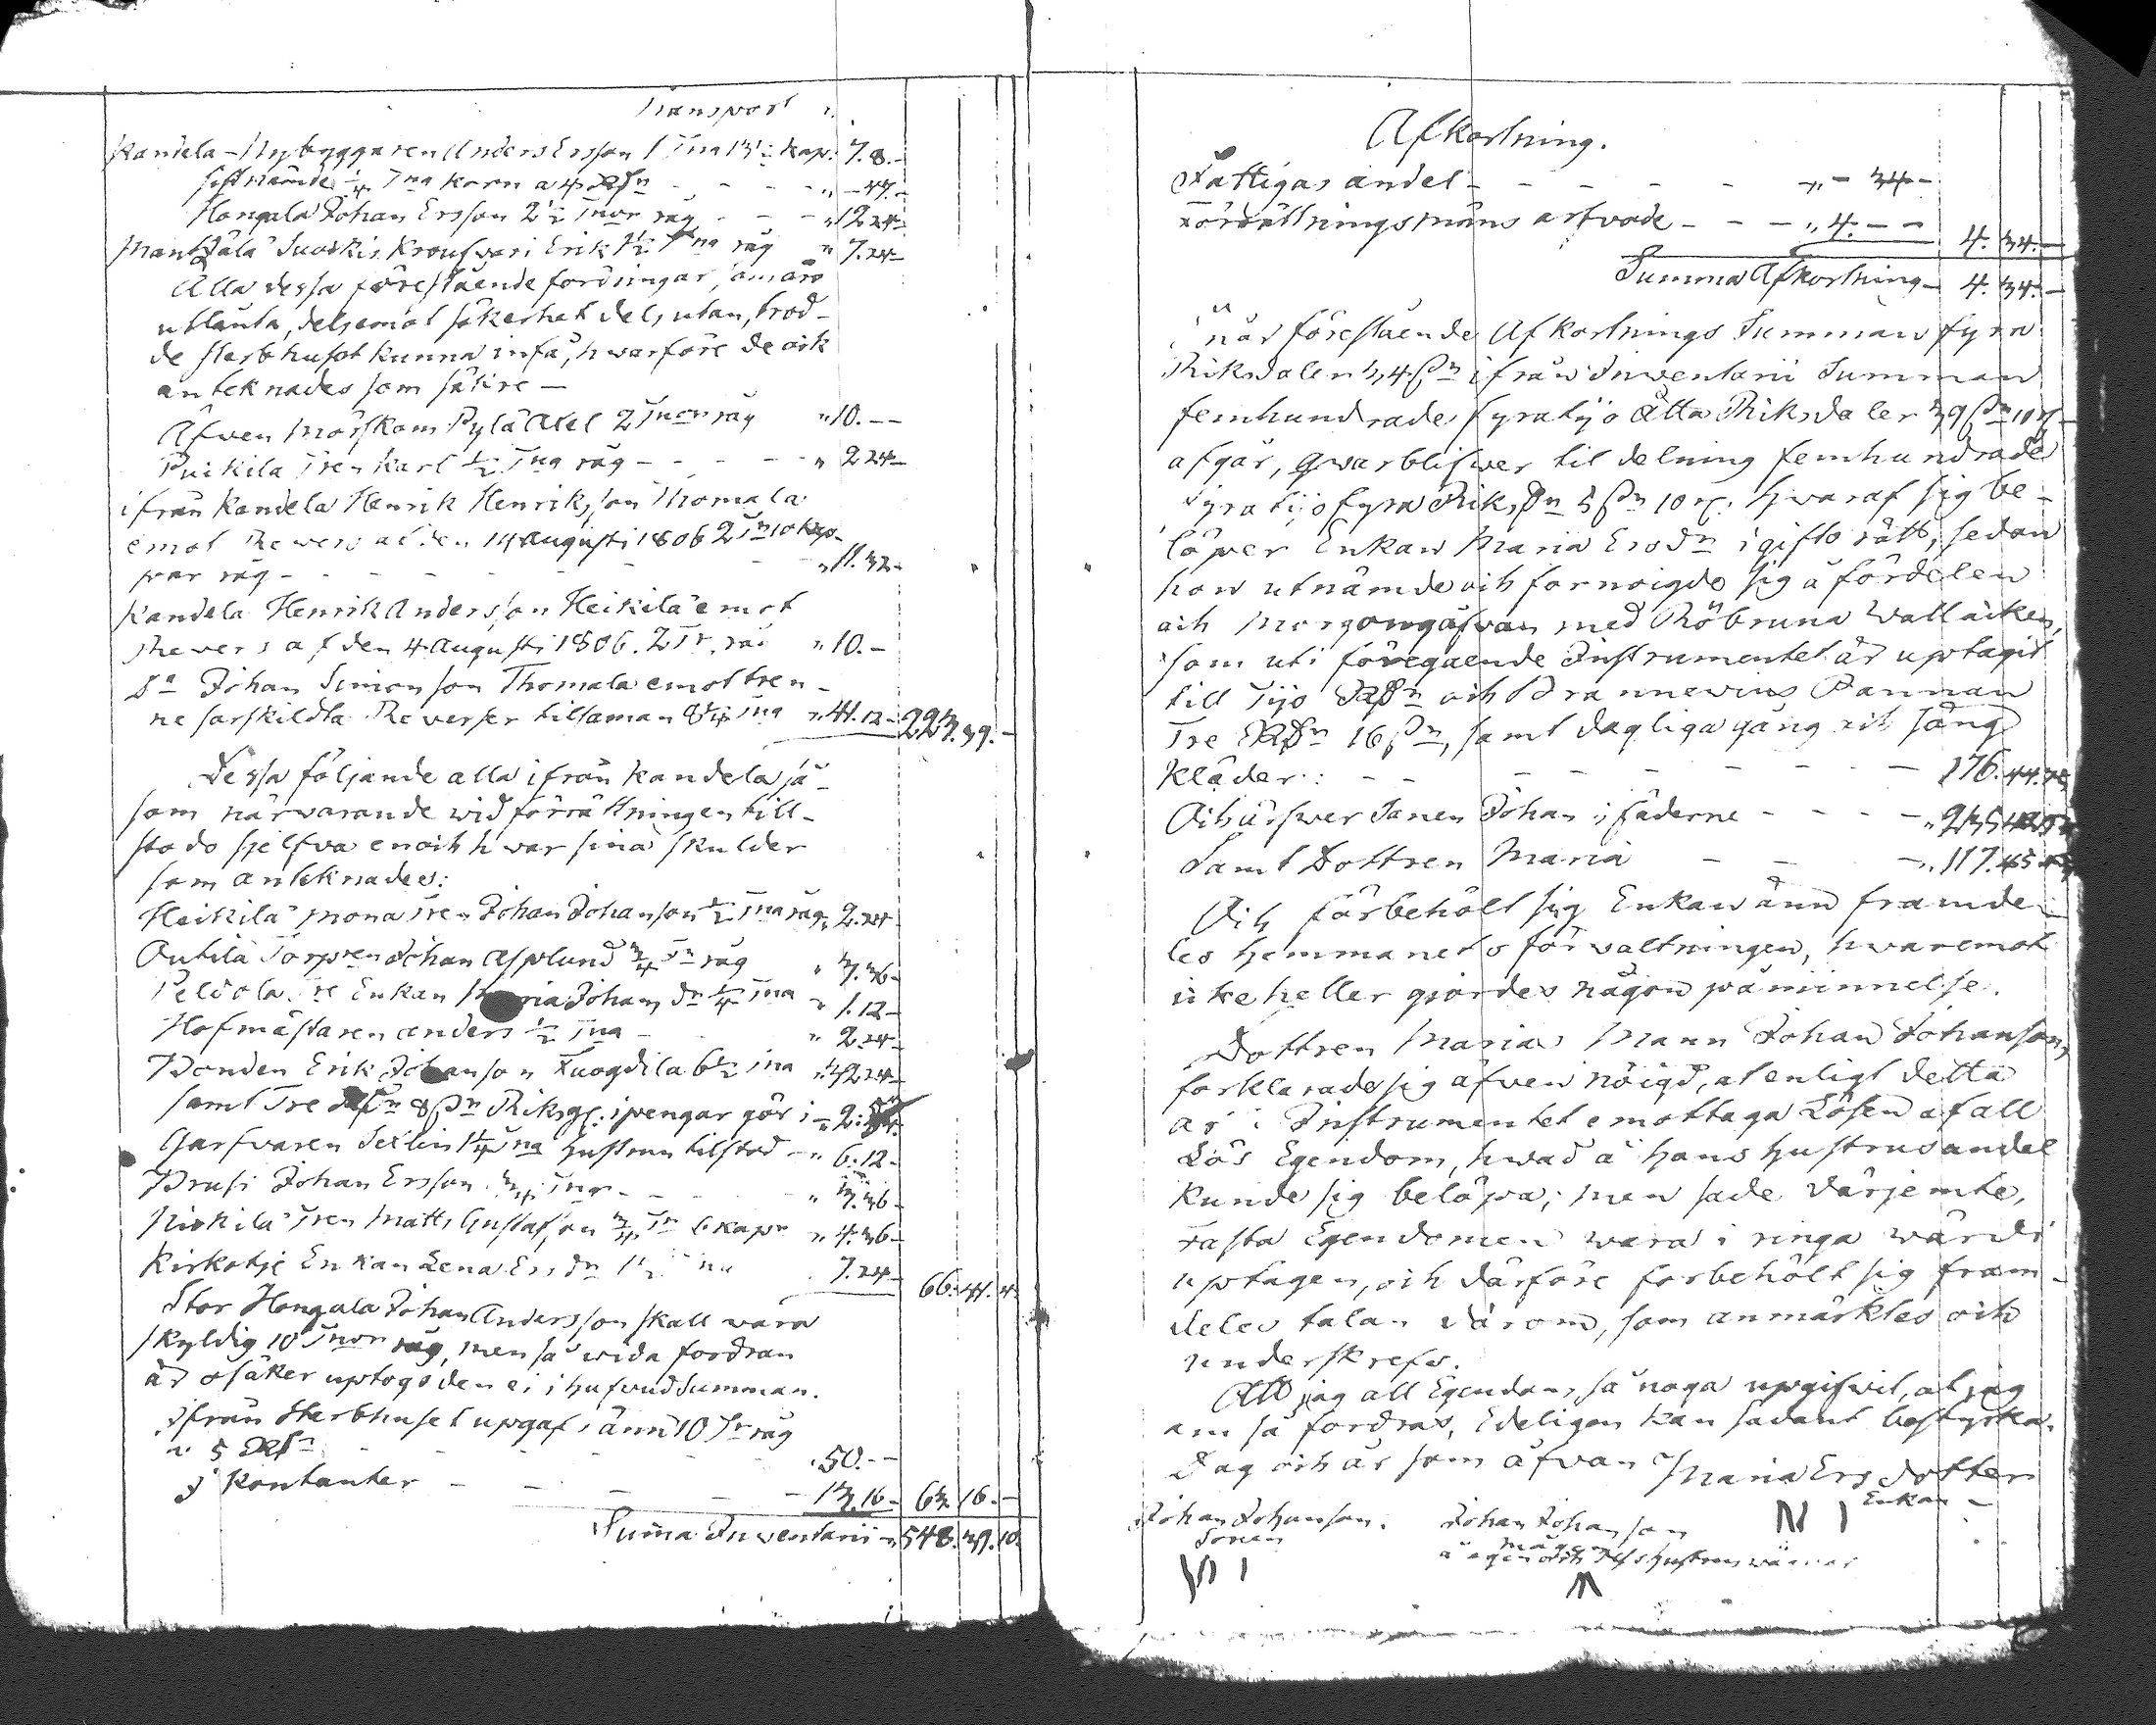 Transport "
Kandela Nybyggaren Anders Ersson 1 Tna 13½ kap: 7. 8.-
sistnämde ¼ Tna korn a 4 RDr - - - " - 44.-
Hongala Johan Ersson 2½ Tnor råg - - - " 12 24-
Mantzälä Suoskis Kroufvari Erik 1½ Tna råg " 7. 24-
Alla dessa förestående fordringar, som äro
utlånta, dels emot säkerhet dels utan, trod-
de Sterbhuset kunna infå, hwarföre de ock
anteknades som säkre -
Äfven Mörskom Pylä Axel 2 Tnor råg " 10. - -
Puikila Tren Karl ½ Tna råg - - - - " 2 24-
ifrån Kandela Henrik Henriksson Thomala
emot Revers af den 14 Augusti 1806 2 Tn 10 kap-
par råg - - - - - - - " 11. 32-
Kandela Henrik Andersson Heikilä emot
Revers af den 4 Augusti 1806. 2 Tr. råg " 10. -
Do Johan Simonsson Thomala emot tren-
ne särskildta Reverser tilsaman 8¼ Tna " 41. 12- 223. 39. -
Dessa följande alla ifrån Kandela så-
som närvarande wid förrättningen till-
stodo sjelfva en och hwar sina skulder
som anteknades:
Heikilä Mona Tren Johan Johansson ½ Tna råg " 2. 24-
Antila Torpren Johan Asplund ¾ Tn råg " 3. 36-
Peldola Tre Enkan Maria Johans dr ¼ Tna " 1. 12-
Hofmästaren Anders ½ Tna - " 2. 24-
Bonden Erik Johansson Tuogdila 6½ Tna " 32 24-
samt Tre RDr 8 sn Riksg. i pengar gör i
Garfvaren Sexlin 1¼ Tna hustrun tilstod - " 6. 12-
Brusi Johan Ersson ¾ Tna - - - " 3. 36-
Niskilä Tren Matts Gustafson ¾ Tn 6 kapr " 4. 36-
Kirkotje Enkan Lena Ers dr 1½ Tna 7. 24- 66. 41. 4.
Stor Hongala Johan Andersson skall vara
skyldig 10 Tnor råg, men så wida fordran
är osäker uptogs den ei i hufvud Summan.
ifrån Sterbhuset upgafs änn 10 Tr råg
a 5 RDr - - - - - - 50. - -
I Kontanter - - - - - - 13. 16- 63. 16. -
Suma Inventarii " 548. 39. 10.
Afkortning.
Fattigas andel - - - - - " - 34 -
Förrättningsmäns arfvode - - - " 4. - - 4. 34. -
Summa Afkortning - 4. 34. -
när förestående Afkortnings Summan fyra
Riksdaler 34 sn ifrån Inventarii Summan
femhundrade fyratijo åtta Riksdaler 39 sn 10 r.
afgår, qwarblifwer til delning femhundrade
fyratijo fyra Riksdr 5 sn 10 r. hwaraf sig be-
löper Enkan Maria Ersdr i gifto rätt, sedan
hon utnämde och fornoigde sig å fördelen
och Morgongåfvan med Röbruna Wallacken,
som uti föregaende Instrumentet är uptagit
till Tijo RDr och Brannevins Pannan
Tre RDr 16 sn, samt dagliga gång och säng
kläder: - - - - - - - - 176. 44.
Och ärfwer Sonen Johan i fäderne - - - - " 235
Samt Dottren Maria - - - " 117. 45
Och förbehölt sig Enkan änn framde-
les hemmanets förvaltningen, hwaremot
icke heller giordes någon påminnelse.
Dottren Marias Mann Johan Johanson,
forklarade sig äfven nöigd, at enligt detta
as Instrumentet emottaga Lösen af all
Lös Egendom, hwad å hans hustrus andel
kunde sig belöpa; men sade därjemte,
Fasta Egendomen wara i ringa wärde
uptagen, och därföre forbehölt sig fram-
deles talan därom, som anmärktes och
underskrefs.
Att jag all Egendom, så noga upgifvit, at jag
om så fordras, Edeligen kan sådant bestyrka.
Dag och år som åfvan Maria Ersdotter
Enkan
Johan Johanson. Johan Johanson
Sonen Mågen
å egen och dess hustrus wägnar